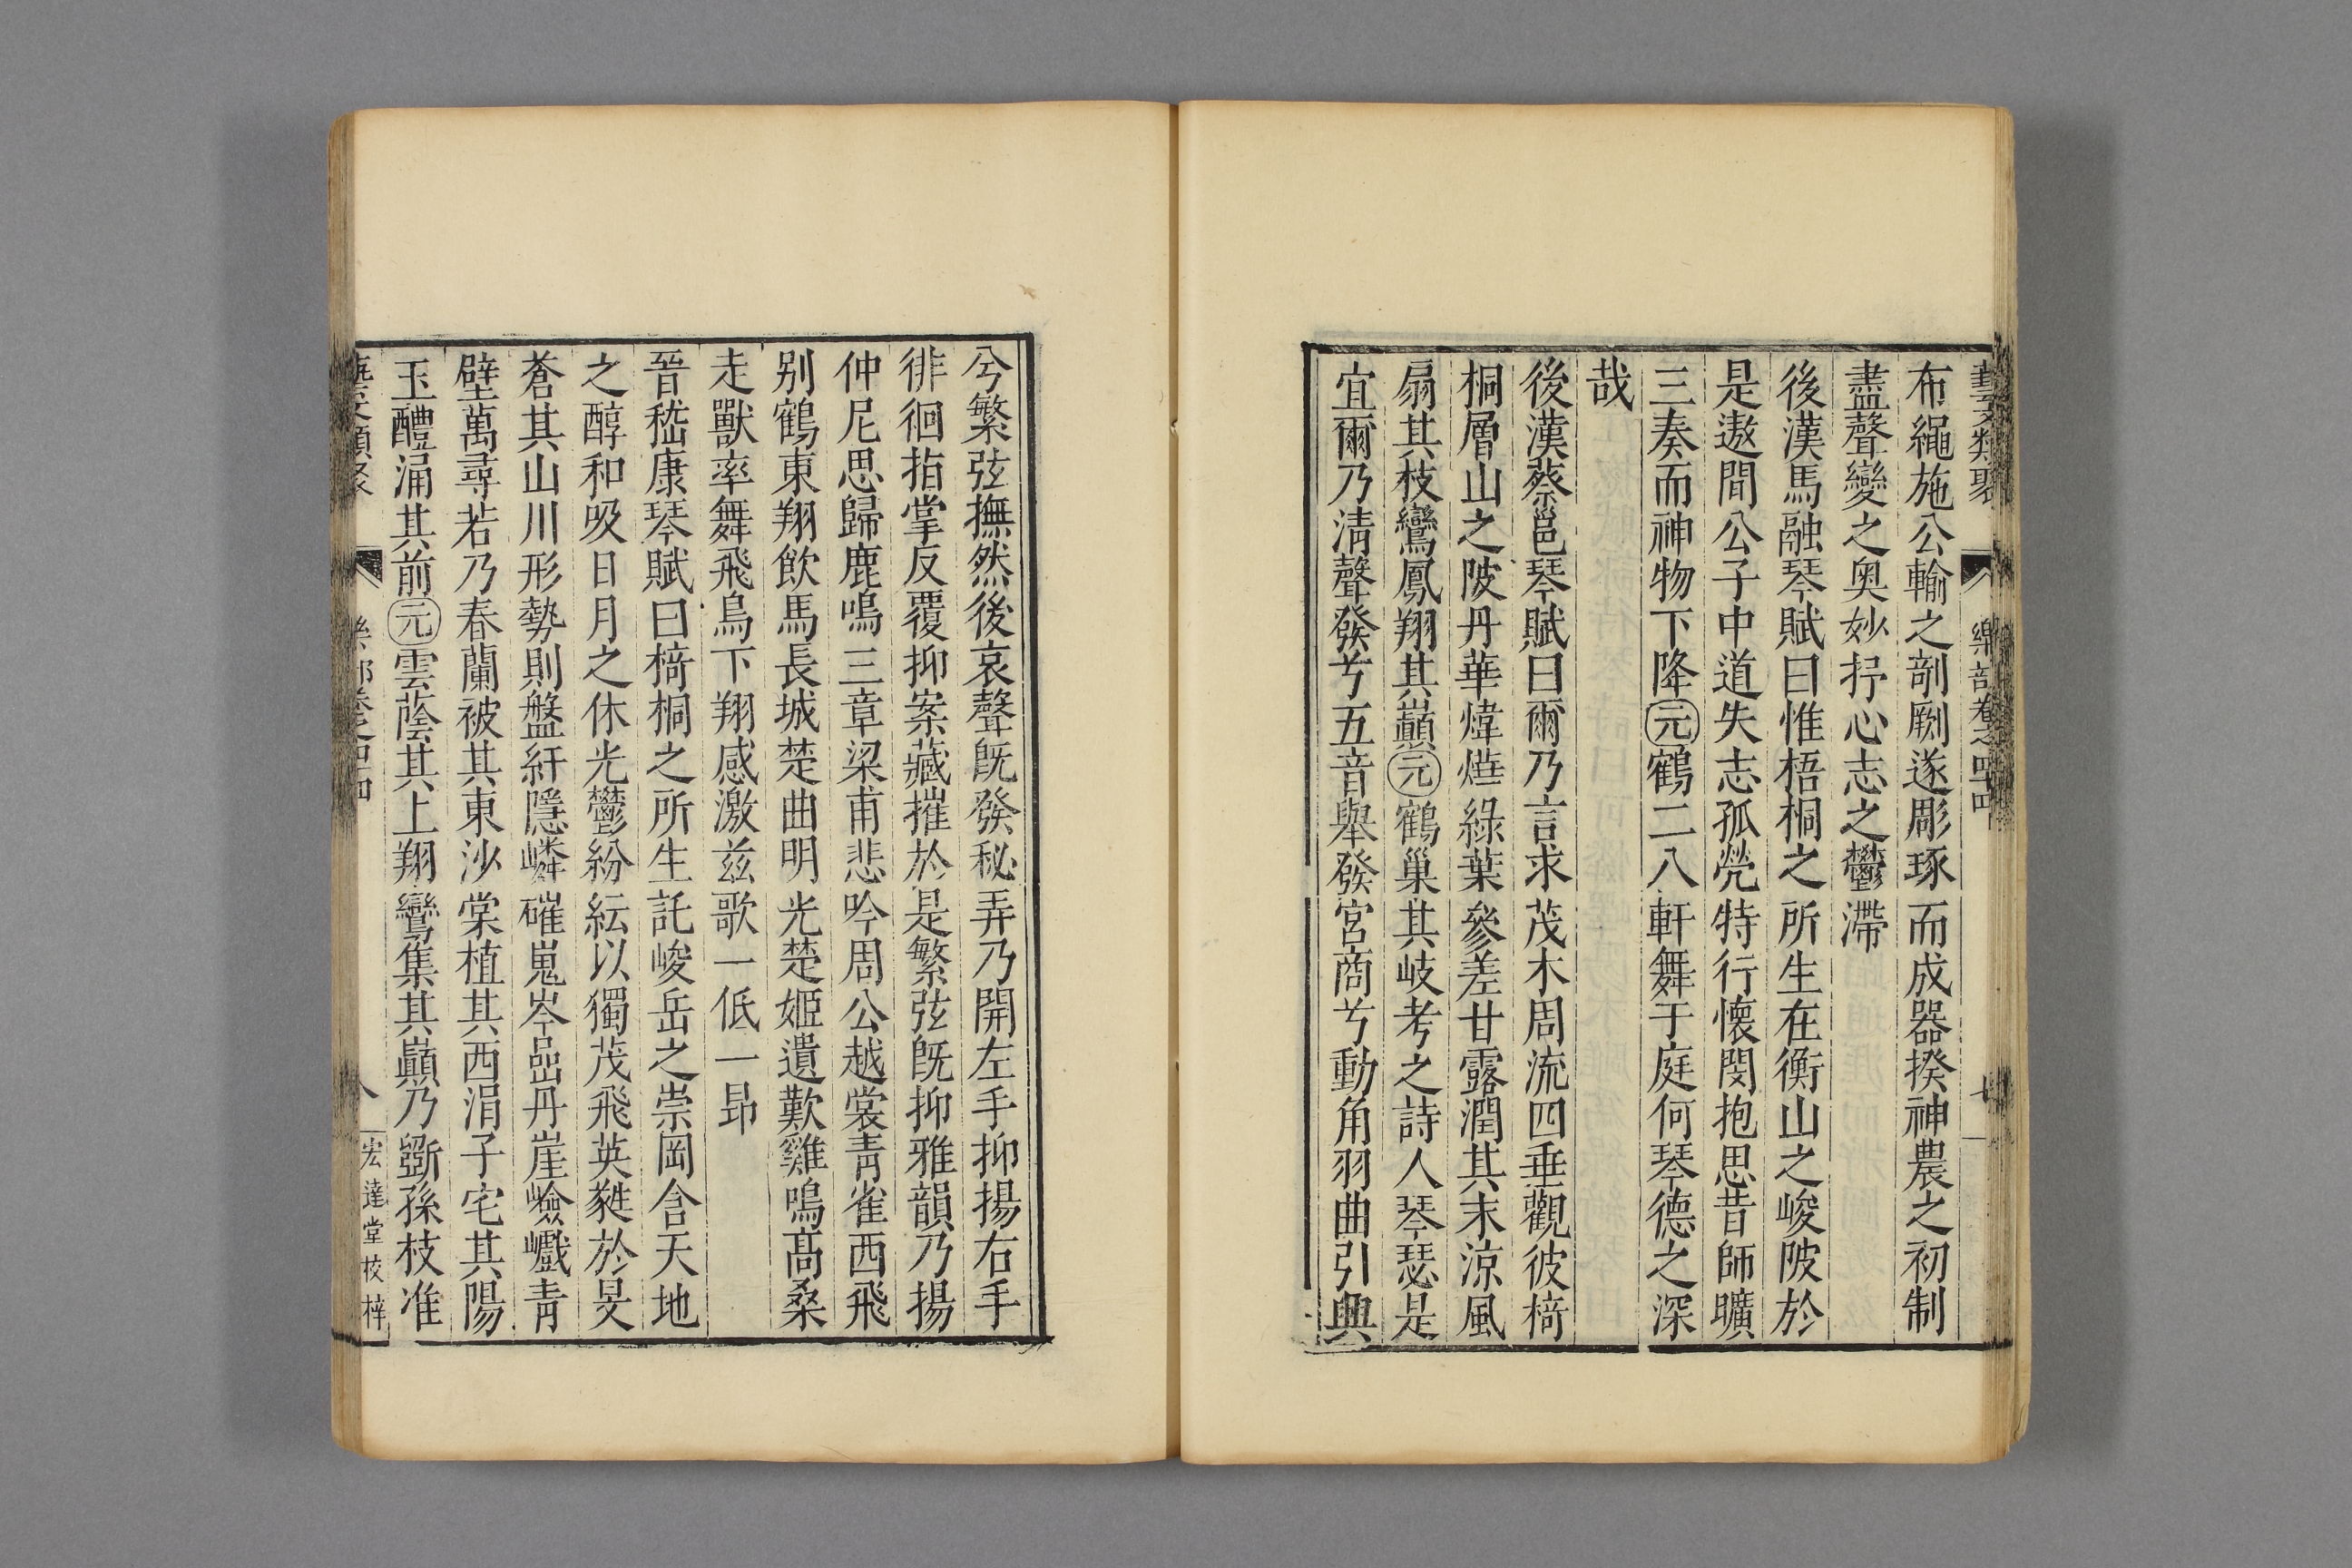 藝文類聚 樂部卷之四十四 七
布繩施公輸之剞劂遂彫琢而成器揆神農之初制
盡聲變之奧妙抒心志之鬱滯
後漢馬融琴賦曰惟梧桐之所生在衡山之峻陂於
是遨間公子中道失志孤煢特行懷閔抱思昔師曠
三奏而神物下降元鶴二八軒舞于庭何琴德之深
哉
後漢蔡邕琴賦曰爾乃言求茂木周流四垂觀彼椅
桐層山之陂丹華煒燁綠葉參差甘露潤其末涼風
扇其枝鸞鳳翔其巔元鶴巢其岐考之詩人琴瑟是
宜爾乃清聲發兮五音舉發宮商兮動角羽曲引興
兮繁弦撫然後哀聲旣發秘弄乃開左手抑揚右手
徘徊指掌反覆抑案藏摧於是繁弦旣抑雅韻乃揚
仲尼思歸鹿鳴三章梁甫悲吟周公越裳青雀西飛
別鶴東翔飲馬長城楚曲明光楚姬遺歎雞鳴高桑
走獸率舞飛鳥下翔感激茲歌一低一昻
晉嵇康琴賦曰椅桐之所生託峻岳之崇岡含天地
之醇和吸日月之休光鬱紛紜以獨茂飛英蕤於旻
蒼其山川形勢則盤紆隱嶙磪嵬岑嵒丹崖嶮巇青
壁萬尋若乃春蘭被其東沙棠植其西涓子宅其陽
玉醴涌其前元雲蔭其上翔鸞集其巔乃斲孫枝准
藝文類聚 樂部卷之四十四 八 宏達堂校梓